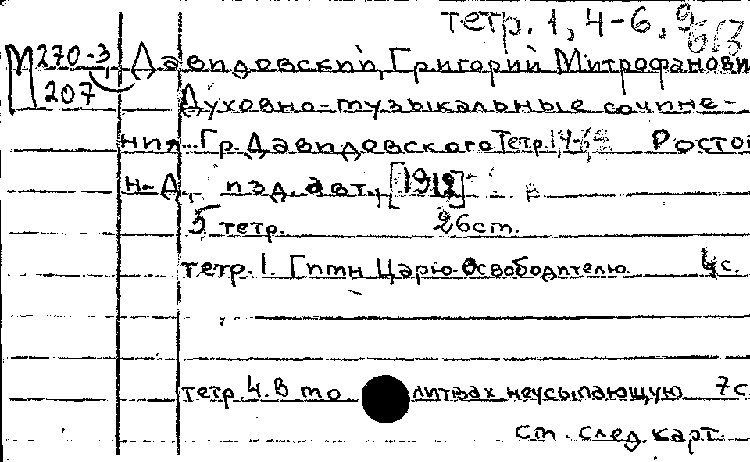 тетр. 1, 4-6, 9
б/3
М 270-3 Давидовский, Григорий Митрофанови
207 Духовно-музыкальные сочине-
ния... Гр. Давидовского Тетр. 1,4-6,9 Росто
н-Д., изд. авт., [1912]
5 тетр. 26 ст.
тетр. 1. Гимн Царю-Освободителю 4 с.
тетр. 4. В мо литвах неусыпающую 7 с
см. след. карт.